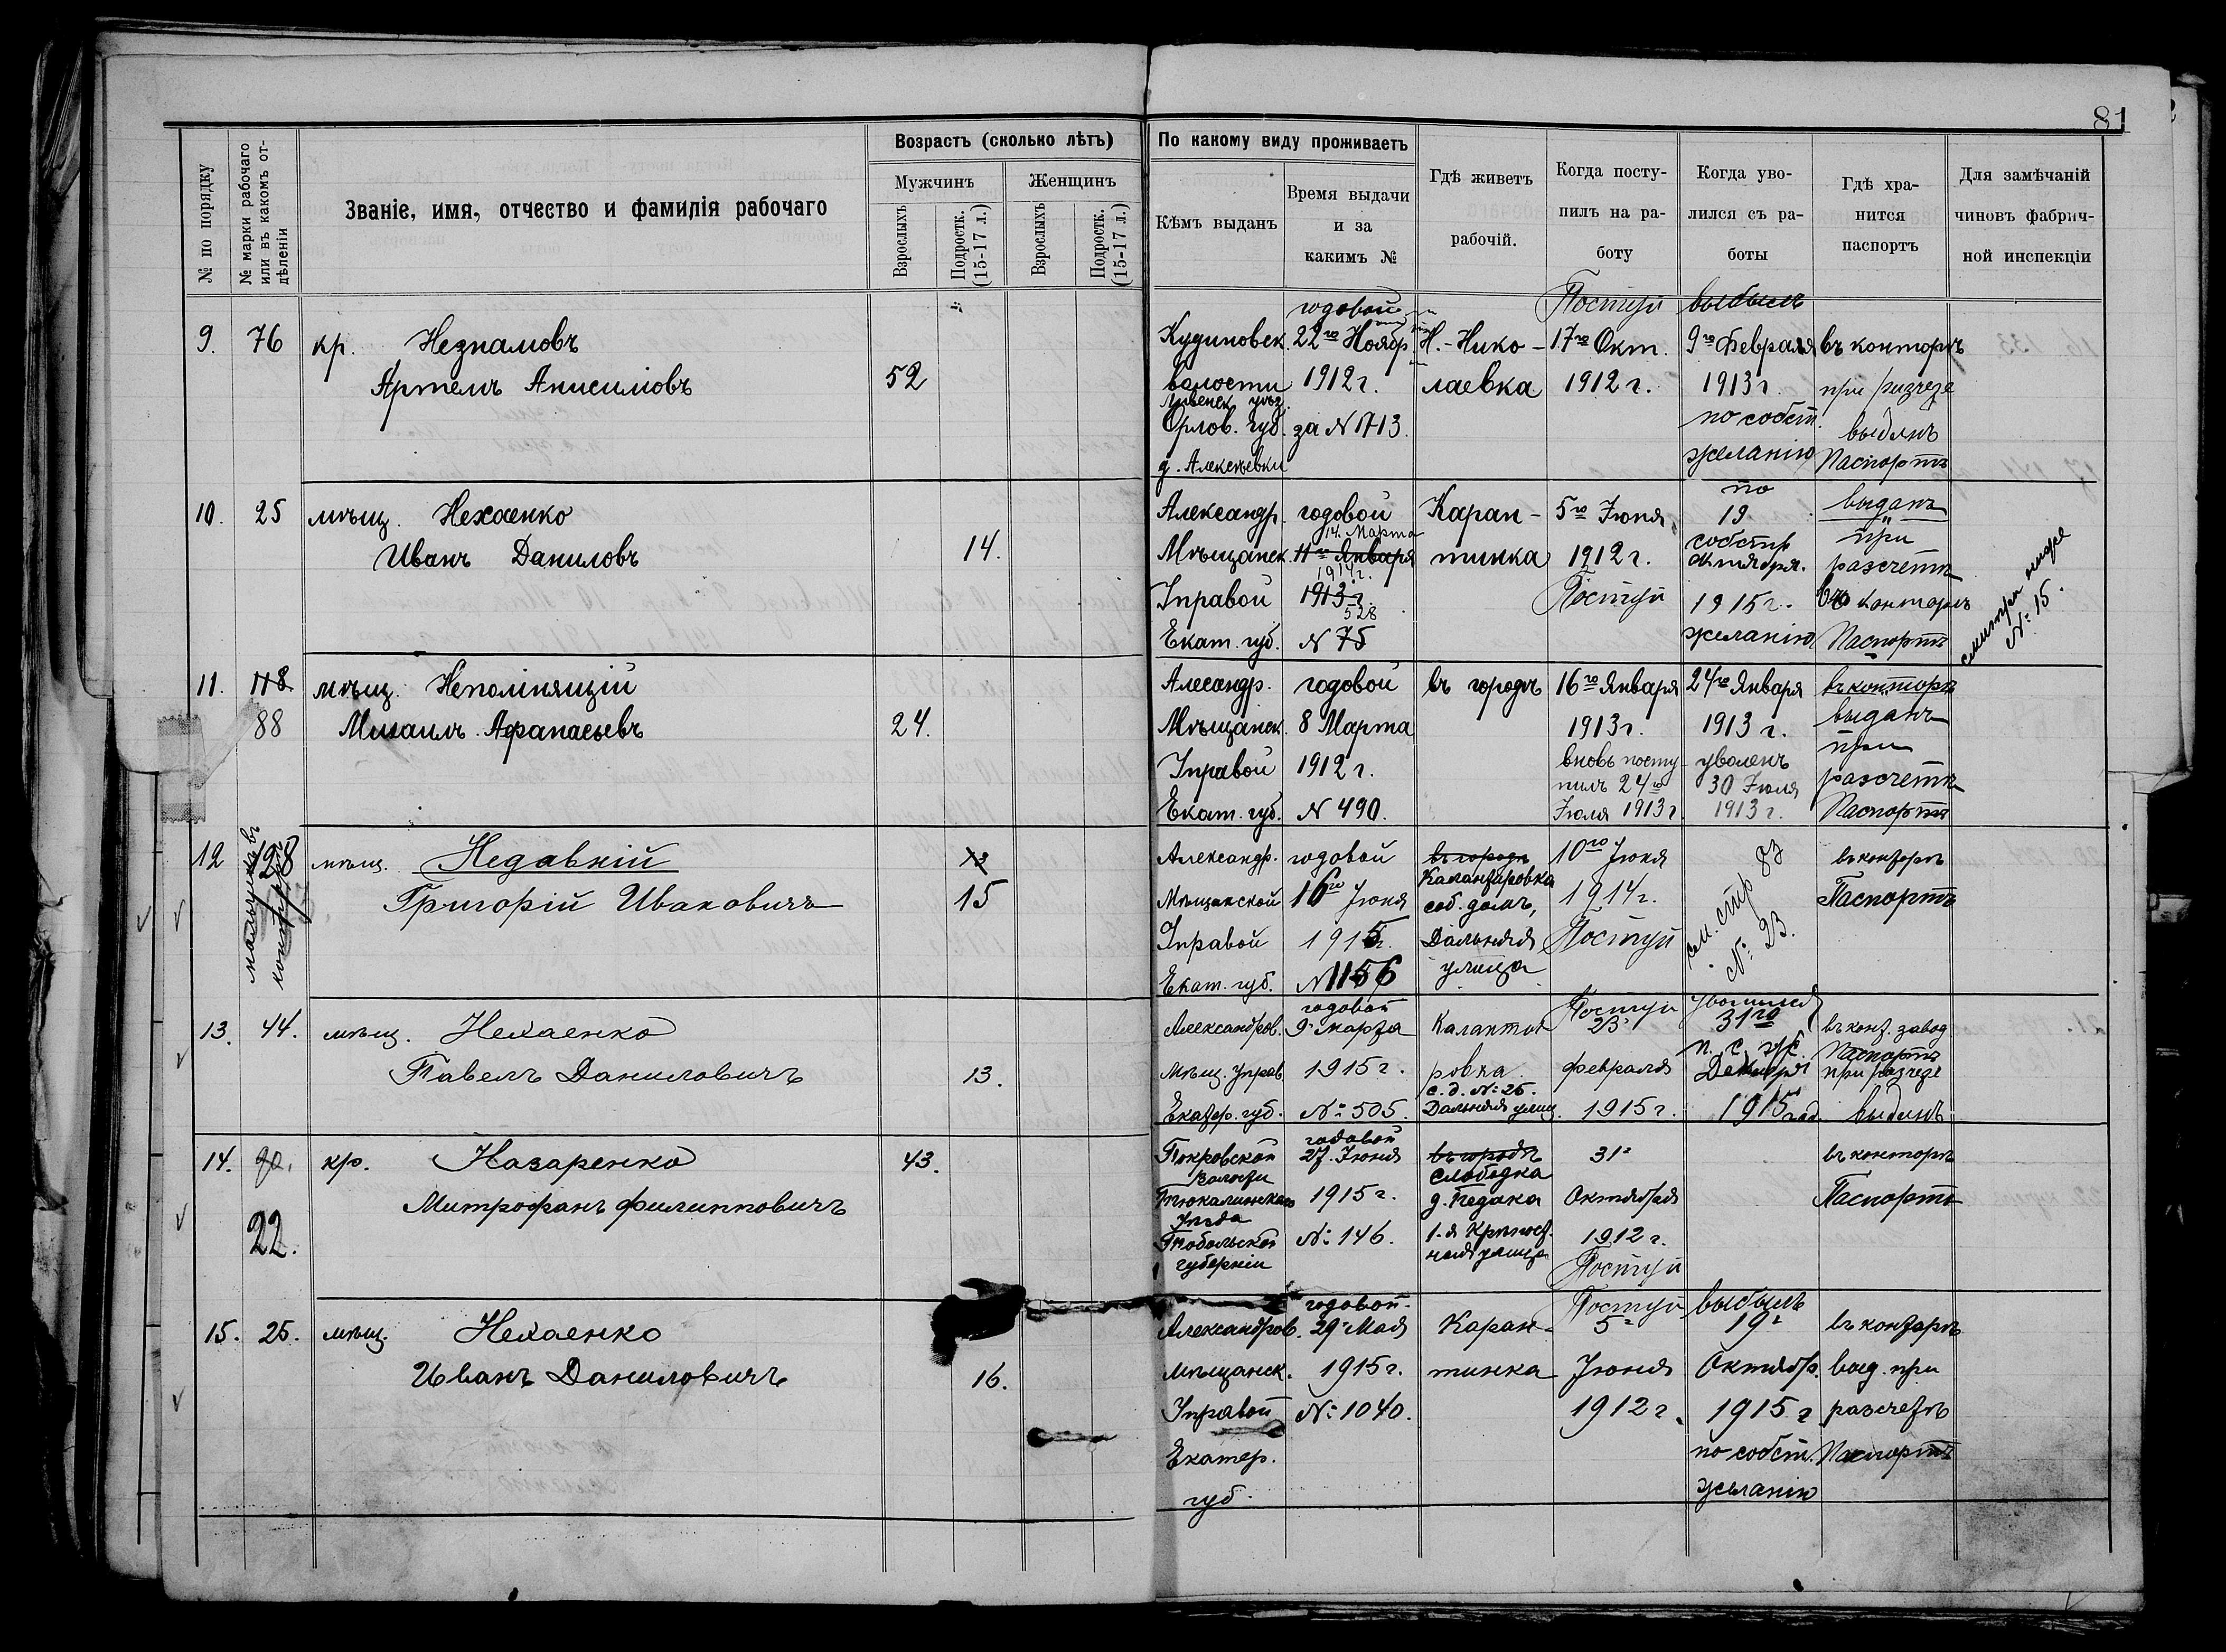 81
№ по порядку
№ марки рабочаго или въ какомъ от-дѣленіи
Званіе, имя, отчество и фамилія рабочаго
Возрастъ (сколько лѣтъ)
Мужчинъ
Женщинъ
Взрослыхъ
Подростк. (15-17 л.)
Взрослыхъ
Подростк. (15-17 л.)
По какому виду проживаетъ
Кѣмъ выданъ
Время выдачи
и за
какимъ №
Гдѣ живетъ
рабочій.
Когда посту-
пилъ на ра-
боту
Когда уво-
лился съ ра-
боты
Гдѣ хра-
нится
паспортъ
Для замѣчаній
чиновъ фабрич-
ной инспекціи
9. 76 кр. Незнамовъ
Артемъ Анисимовъ
52
Кудиновск.
волости
Ливенск. уѣз.
Орлов. губ.
д. Алексѣевки
годовой
22го Нояб.
1912 г.
за N 1713.
Н.-Нико-
лаевка
Поступ
17го Окт.
1912 г.
выбылъ
9го Февраля
1913 г.
по собст.
желанію
въ конторѣ
при
выданъ
Паспортъ
10. 25 мѣщ. Нехаенко
Иванъ Даниловъ
14.
Александр.
Мѣщанск.
Управой
Екат. губ.
годовой
14. Марта
11го Января
1914 г.
1913 г.
528
N 75
Каран-
тинка
5го Іюня
1912 г.
Поступ
по
19
собств
октября.
1915 г.
желанію
выданъ
при
разсчетѣ
конторѣ
Паспортъ
смотри ниже
№ 15.
11. 118 мѣщ. Неполінящій
88 Михаилъ Афанасьевъ
24.
Алесандр.
Мѣщанск.
Управой
Екат. губ.
годовой
8 Марта
1912 г.
N 490.
въ городѣ
16го Января
1913 г.
вновь посту-
пилъ 24го
Іюля 1913 г.
24го Января
1913 г.
уволенъ
30 Іюля
1913 г.
въ конторѣ
выданъ
при
разсчетѣ
Паспортъ
12 128 мѣщ. Недавній
мальчикъ въ
конторѣ
Григорій Ивановичъ
15
Александр.
Мѣщанской
Управой
Екат. губ.
годовой
16го Іюня
1915 г.
N 1156
въ городѣ
Калантаровка
соб. домъ,
Дальняя
улица
10го Іюня
1914 г.
Поступ
см. стр 83
№ 23.
въ конторѣ
Паспортъ
13. 44. мѣщ. Нехаенко
Павелъ Даниловичъ
13.
Александров.
мѣщ. Управ
Екатер. губ.
годовой
9 марта
1915 г.
№ 505.
Каланта
ровка
с. д. № 25.
Дальняя улиц.
Поступ
23
февраля
1915 г.
уволился
31го
п. с. ж.
Декабря
1915 год.
въ конт. завод
Паспортъ
при
выданъ
14. 90. кр. Назаренко
22. Митрофанъ Филипповичъ
43.
Покровской
Волости
Тюкалинскаго
Уѣзда
Тобольской
губерніи
годовой
27. Іюня
1915 г.
№ 146.
въ городѣ
слободка
д. Педака
1-я Крѣпост-
ная улица
31
Октября
1912 г.
Поступ
въ конторѣ
Паспортъ
15. 25. мѣщ. Нехаенко
Иванъ Даниловичъ
16.
Александров.
мѣщанск.
Управой
Екатер.
губ.
годовой
29 Мая
1915 г.
№ 1040.
Каран-
тинка
Поступ
5
Іюня
1912 г.
выбылъ
19
Октябр.
1915 г
по собст.
желанію
въ конторѣ
выд. при
разсчетѣ
Паспортъ